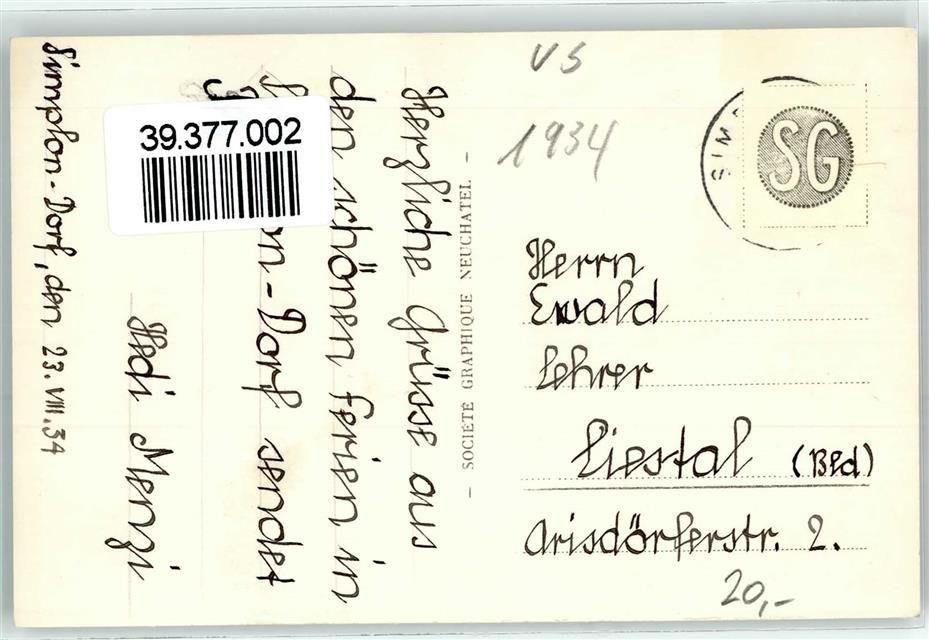 Simplon-Dorf, den 23.VIII.34
Herzliche Grüsse aus
den schönen Ferien in
on-Dorf sendet
Hedi Menzi
39.377.002
- SOCIÉTÉ GRAPHIQUE NEUCHATEL -
VS
1934
SIM
SG
Herrn
Ewald
Lehrer
Liestal (Bld)
Arisdörferstr. 2.
20,-